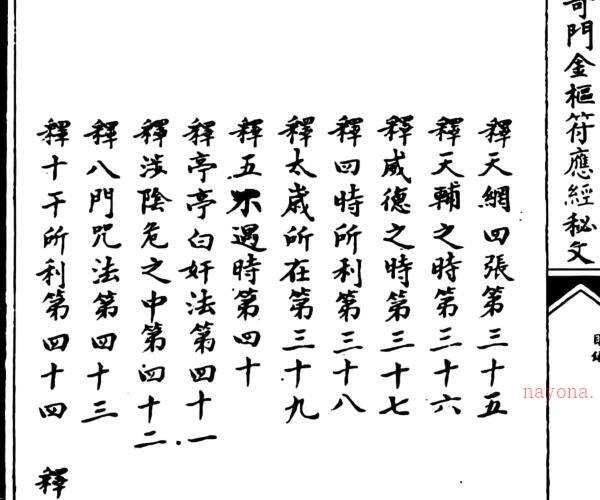 奇門金樞符應經秘文
釋天網四張第三十五
釋天輔之時第三十六
釋威德之時第三十七
釋四時所利第三十八
釋太歲所在第三十九
釋五不遇時第四十
釋亭亭白奸法第四十一
釋涉陰危之中第四十二
釋八門咒法第四十三
釋十干所利第四十四 釋
目
nayona.